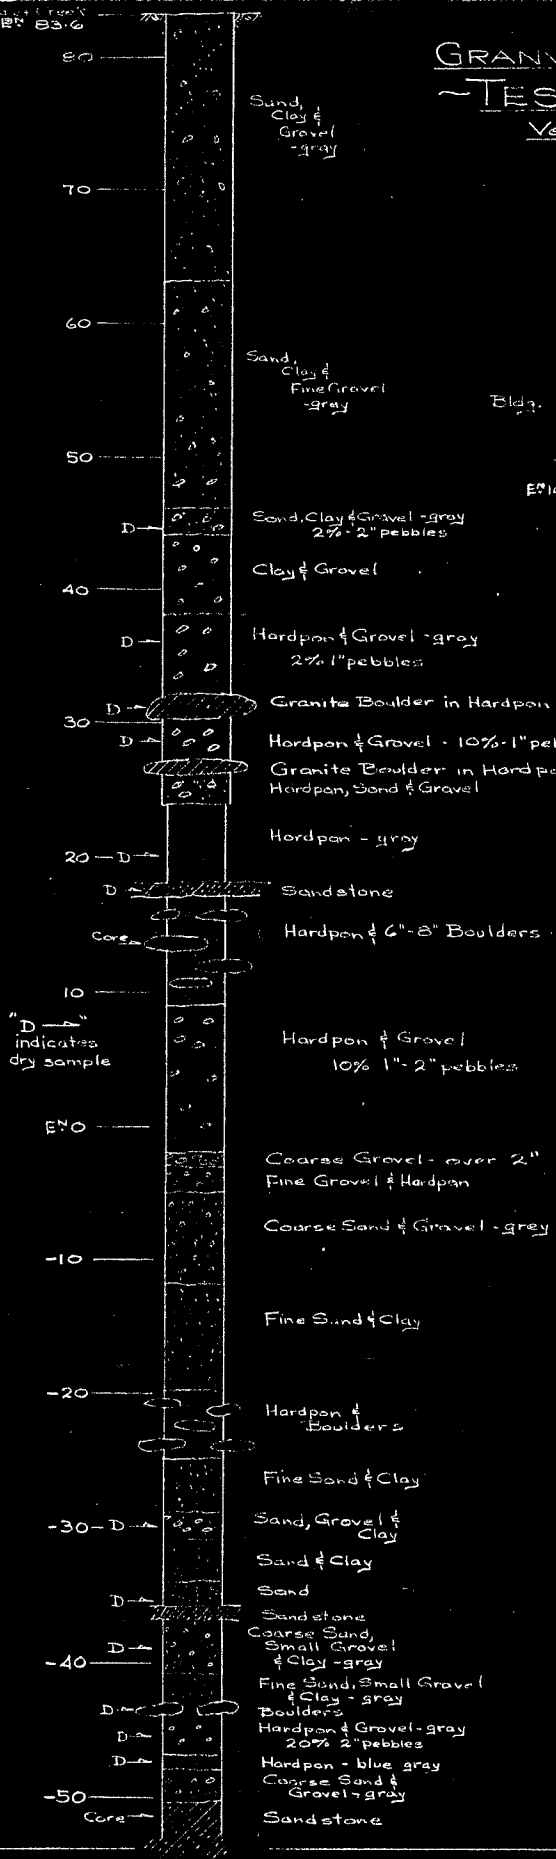 EN 83.6
GRANV
~TES
Ve
80
Sand,
Clay &
Gravel
-gray
70
60
Sand,
Clay &
Fine Gravel
-gray
Bldg.
50
EN 10
Sand, Clay & Gravel -gray
D
2%-2" pebbles
Clay & Gravel
40
Hardpan & Gravel -gray
D
2% 1" pebbles
D
Granite Boulder in Hardpan
30
D
Hardpan & Gravel - 10%-1" pe
Granite Boulder in Hardpa
Hardpan, Sand & Gravel
Hardpan - gray
20 D
D
Sandstone
Hardpan & 6"-8" Boulders
Core
10
"D "
indicates
dry sample
Hardpan & Gravel
10% 1"-2" pebbles
EN 0
Coarse Gravel - over 2"
Fine Gravel & Hardpan
Coarse Sand & Gravel -grey
-10
Fine Sand & Clay
-20
Hardpan &
Boulders
Fine Sand & Clay
Sand, Gravel &
Clay
-30 D
Sand & Clay
Sand
D
Sandstone
Coarse Sand,
Small Gravel
& Clay -gray
D
-40
Fine Sand, Small Gravel
& Clay - gray
Boulders
D
Hardpan & Gravel -gray
20% 2" pebbles
D
Hardpan - blue gray
D
Coarse Sand &
Gravel -gray
-50
Core
Sandstone